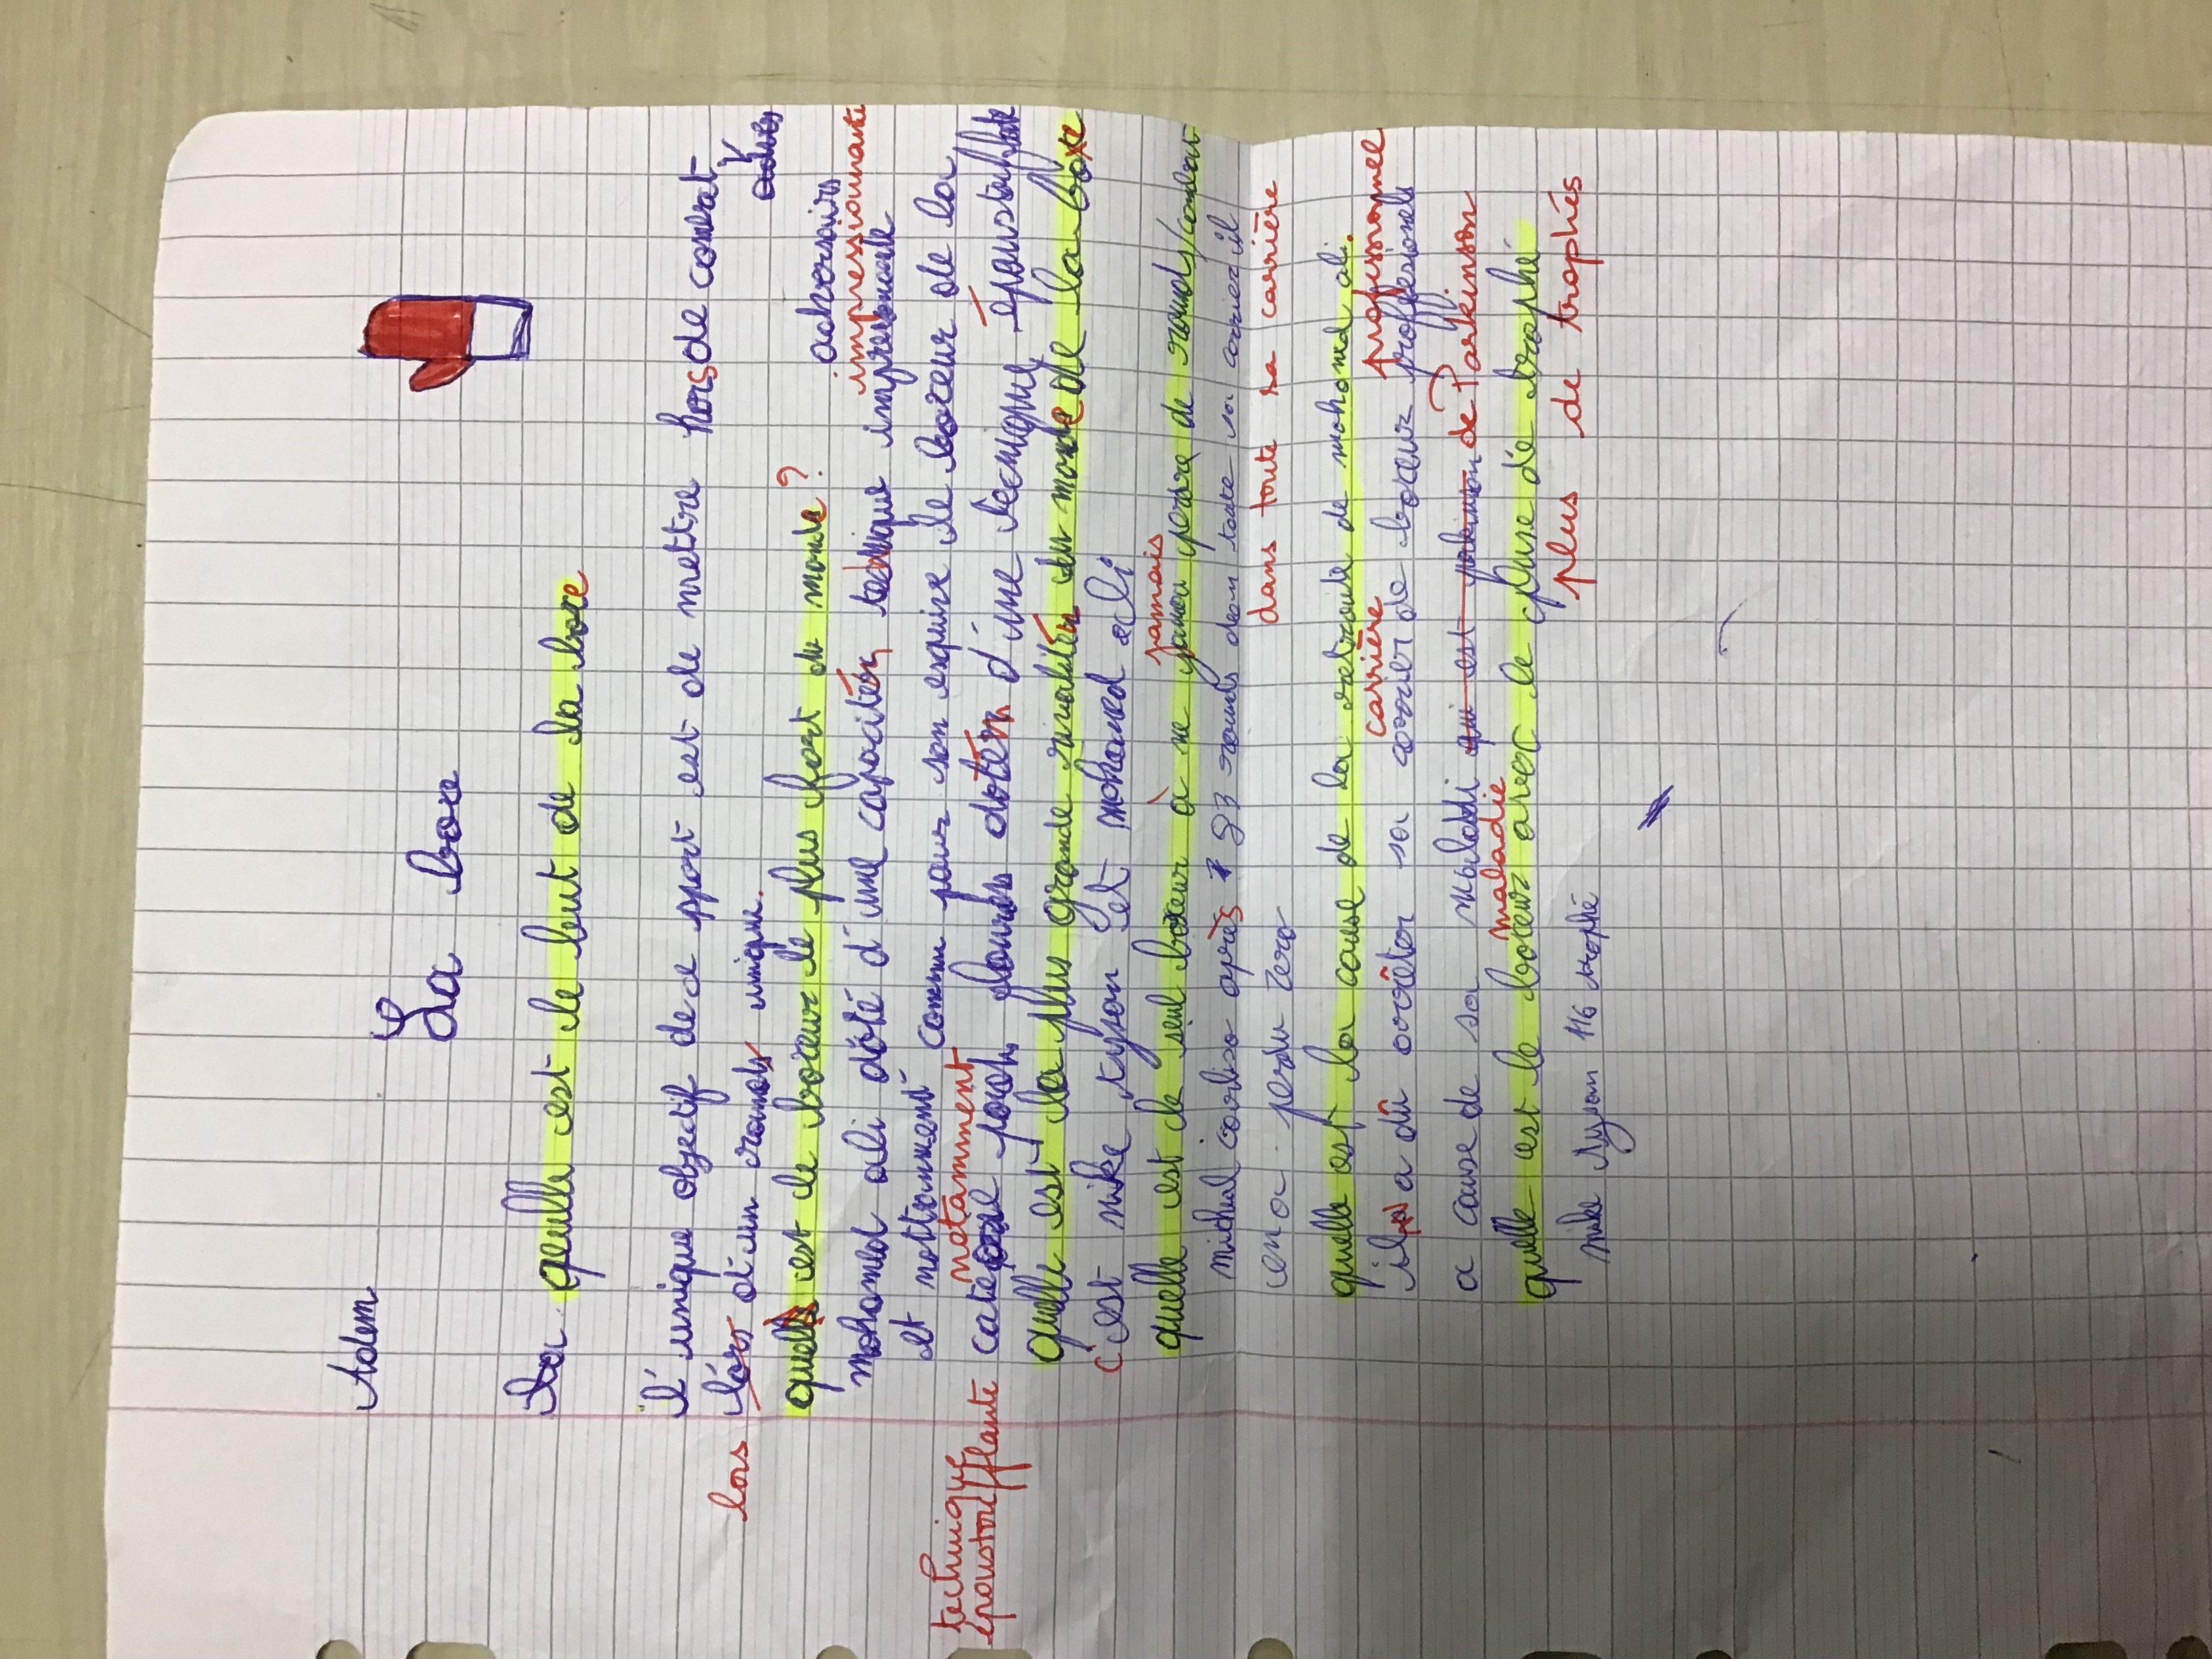 Adem
La boxe
quelle est le but de la boxe
L'unique objectif de ce sport est de mettre hors de combat
adversairs
lors d'un rounds unique.
lors
quelle est le boxeur le plus fort du monde ?
impressionnante
mohamed ali doté d'une capacitér technique
et nottamment connu pour son esquive le boxeur de la
notamment
catégorie poids lourds dotér d'une tecnique
technique
époustouflante
quelle est la plus grande rivalitér du monde de la boxe
C'est mike tyson et mohamed ali
jamais
quelle est le seul boxeur à ne jamai perdre de rounds/combat
michal corliso après 83 rounds dean toute sa carrier il
en a perdu zero
dans toute sa carrière
quelle est la cause de la retraite de mohamed ali.
carrière
professionnel
il a dû arrêter sa carrier de boxeur proffesionels
a cause de sa maladi qui est parkinson de Parkinson
maladie
quelle est le boxeur avec le pluse de trophé
plus de trophés
mike tyson 116 trophé